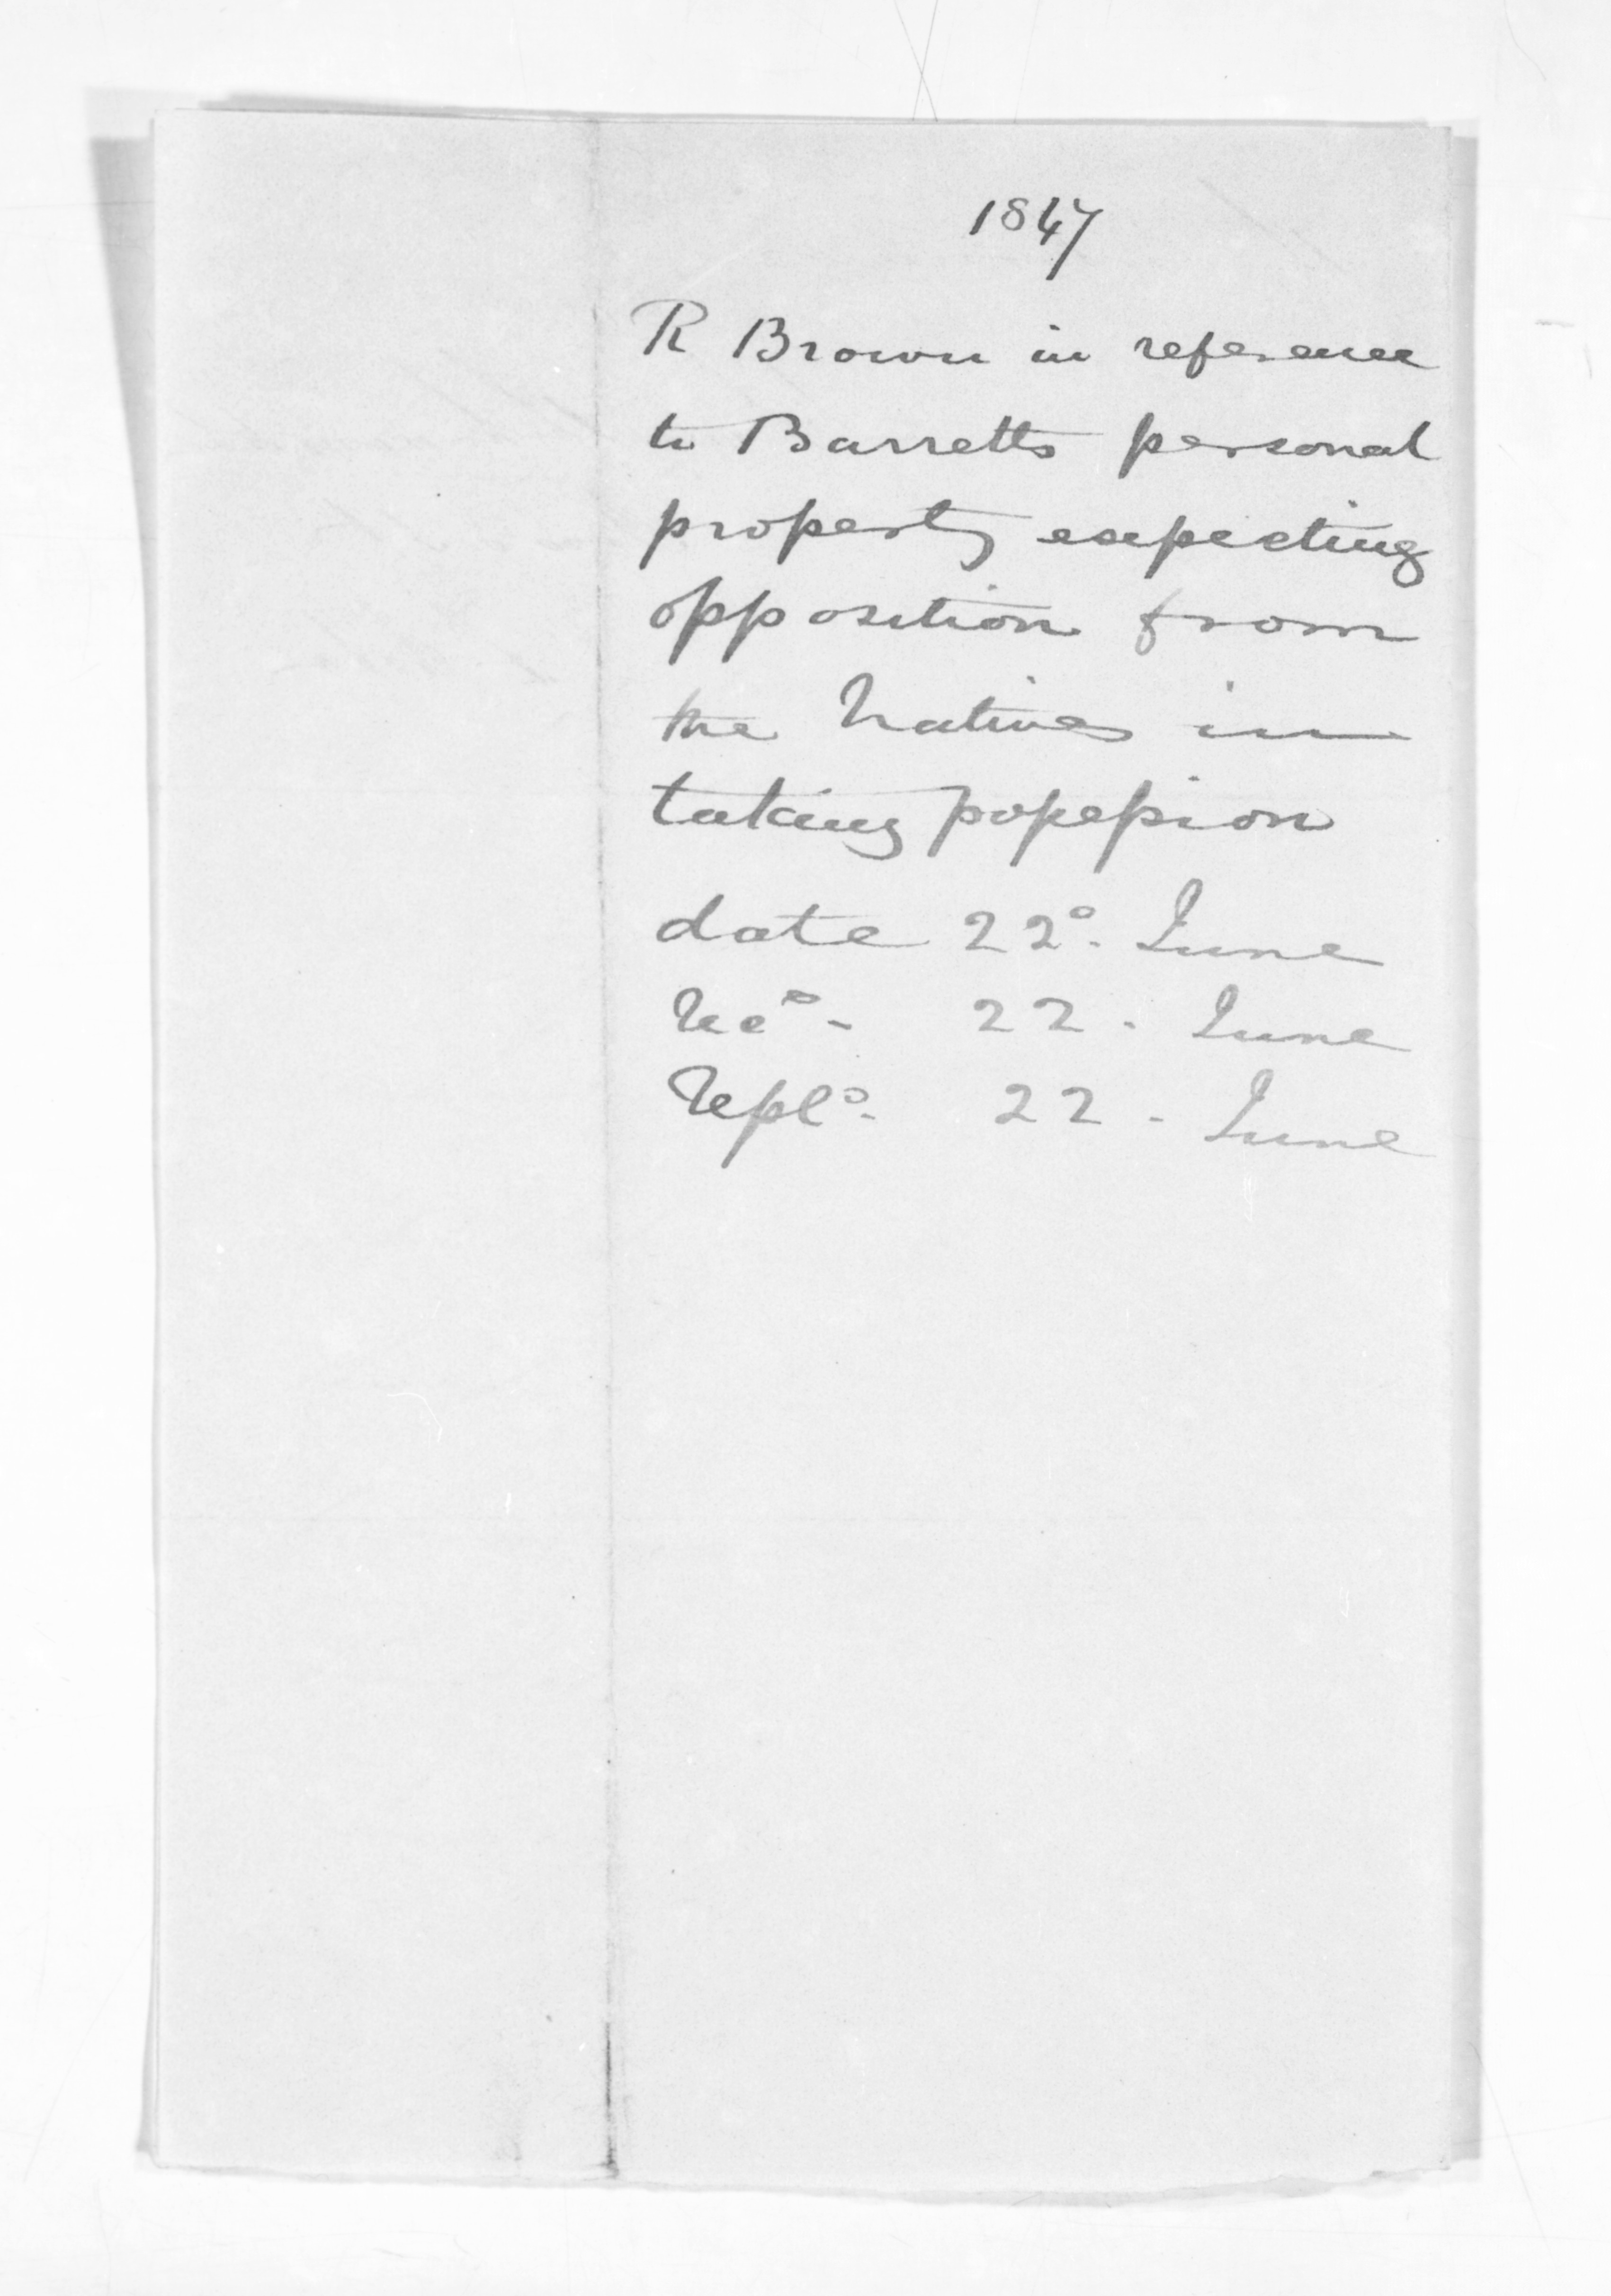 1847
R Brown in reference
to Barretts personal
property expecting
opposition from
the Natives in
taking possession
date 22°. June
Rec° - 22 . June
Repl°. 22 . June